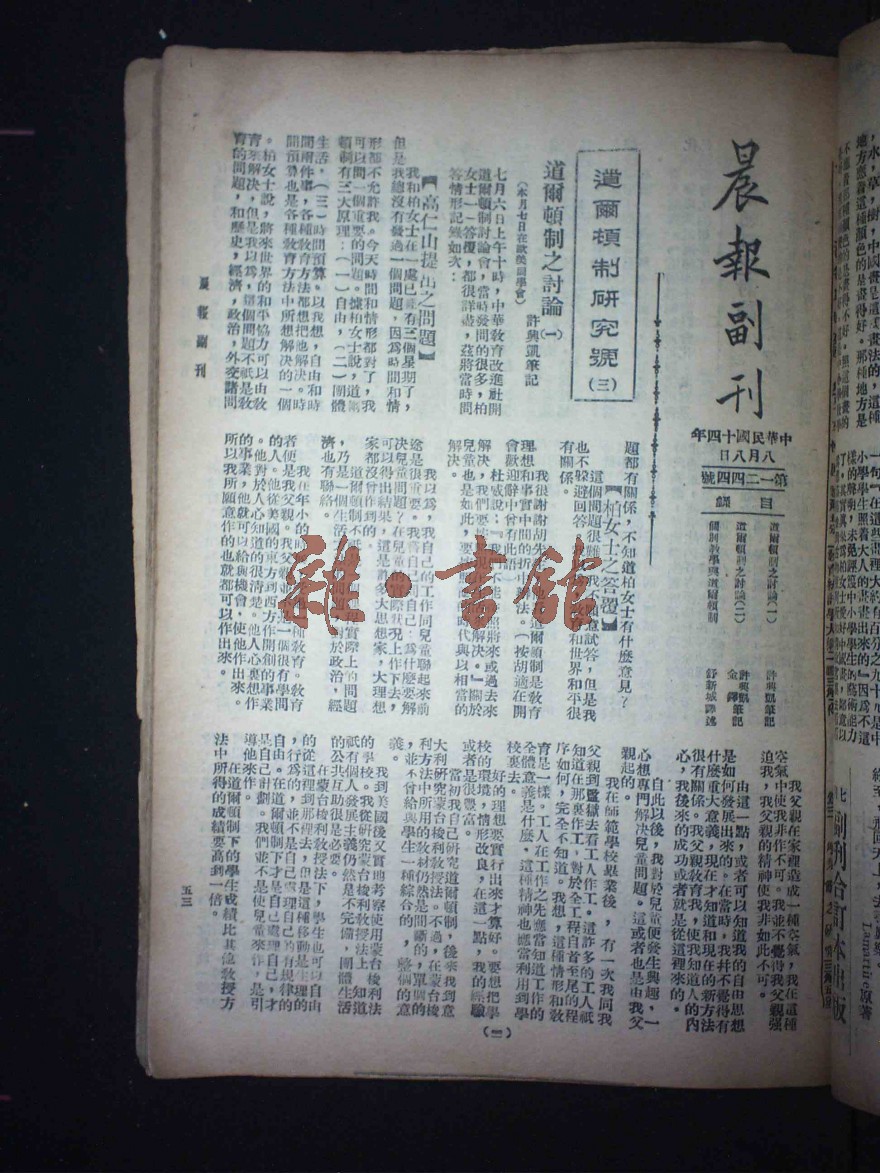 晨報副刊
中華民國十四年
八月八日
第一二四四號
目錄
道爾頓制之討論(一) 許興凱筆記
道爾頓制之討論(二) 許興凱筆記
個別教學與道爾頓制 舒新城譯述
道爾頓制研究號(三)
道爾頓制之討論(一)
(本月七日在歐美同學會)
許興凱筆記
七月六日上午十時,中華教育改進社開
道爾頓制討論會,當時發問的很多,柏
女士一一答覆,都很詳盡,茲將當時問
答情形記錄如次:
【高仁山提出之問題】
我和柏女士在一處已經有三個星期了,
但是我總沒有發過一個問題,因為時間和情
形都不允許我。今天時間和情形都對了,我
可以問一個重要的問題。據柏女士說,道爾
頓制有三大原理:(一)自由,(二)團體
生活,(三)時間預算。以我想,自由和時
間兩件事,各種教育方法都想把他解決。時
間預算也是各種教育方法中所想解決的一個
。柏女士說,將來世界的和平協力可以由教
育來解決,但是我以為,這個問題不祇是教
育的問題,和歷史,經濟,政治,外交諸問
題都有關係,不知道柏女士有什麼意見?
【柏女士之答覆】
這個問題很難
也不躲避回答
有關係。
我很謝謝胡先
理想和事實中間的折
會歡迎辭中曾有此語
杜威說:『我
解決,我們要按現
兒童也是如此,要
解決。
我以為,我自己的工作同兒童聯起來前
途是很重要。我
決兒童問題?在兒童的實際狀況上作下去,
可以得出結果,這是許多大思想家,大理想
家都沒曾作到的。
道爾頓制不祇是
,乃是一個生活
濟也有聯絡。
我在年小的時
者便是我父親。我父親
的人。他從美國的東方到西方作開創的事業
。他對於人心知道的很清楚。他人心裏想作
的事業,他就可以給與機會,使他作出來。
所以我所願意作的也就都可以作出來。
我父親在家裡造成一種空氣,我在這種
空氣中使我非作不可。我並不覺得我父親強
迫我,我父親的精神使我非如此不可。
由這一點,或者可以知道我的自由思想
是如何發展出來的。在當時,我并不覺得有
什麼重大意義,現在才知道和現在的新方法
很有關係。我父親教育我,使我知道人的內
心,我後來的成功或者就是從這裡來的。
自此以後,我對於兒童便發生興趣,一
心想專門解決兒童問題。這或者也是由我父
親起的。
我在師範學校畢業後,有一次我同我
父親到監獄去看工人作工。這許多的工人祇
知道在那裏作工,對於全工程自首至尾的程
序如何,完全不知道。我想,這種情形和教
育是一樣。工人在工作之先應當知道工作的
全體意義是什麼,這種精神也應當利用到學
校裏去。
好的理想要實行出來才算好。要想把學
校的環境,情形改良,在這一點,我的經驗
或者是很豐富。
當初我自己研究道爾頓制,後來我到意
大利研究蒙台梭利教授法。不過,在蒙台梭
利方法中所用的教材仍然是間斷的,單個的
,並不曾給與學生一種綜合的,整個的意
義。
我到美國後又實地考察使用蒙台梭利法
的學校。我從研究蒙台梭利教授法上,知道
祇有個人發展主義仍然是不完備,團體生活
的公共互助很是必要。
在蒙台梭利教授法下,學生也可以自由
的從這裡到那裡去,但是這種移動是生理的
,行為的,並不是自己處理自己的有規律的
自由。在道爾頓制下才是自己處理自己,才
是自己計劃。我們並不是使兒童來作,是引
導他來作。
在道爾頓制下的學生成績比其他教授方
法中所得的成績要高到一倍。
晨報副刊
五三
(一)
雜·書館
副刊合訂本出版
Lamartine原著